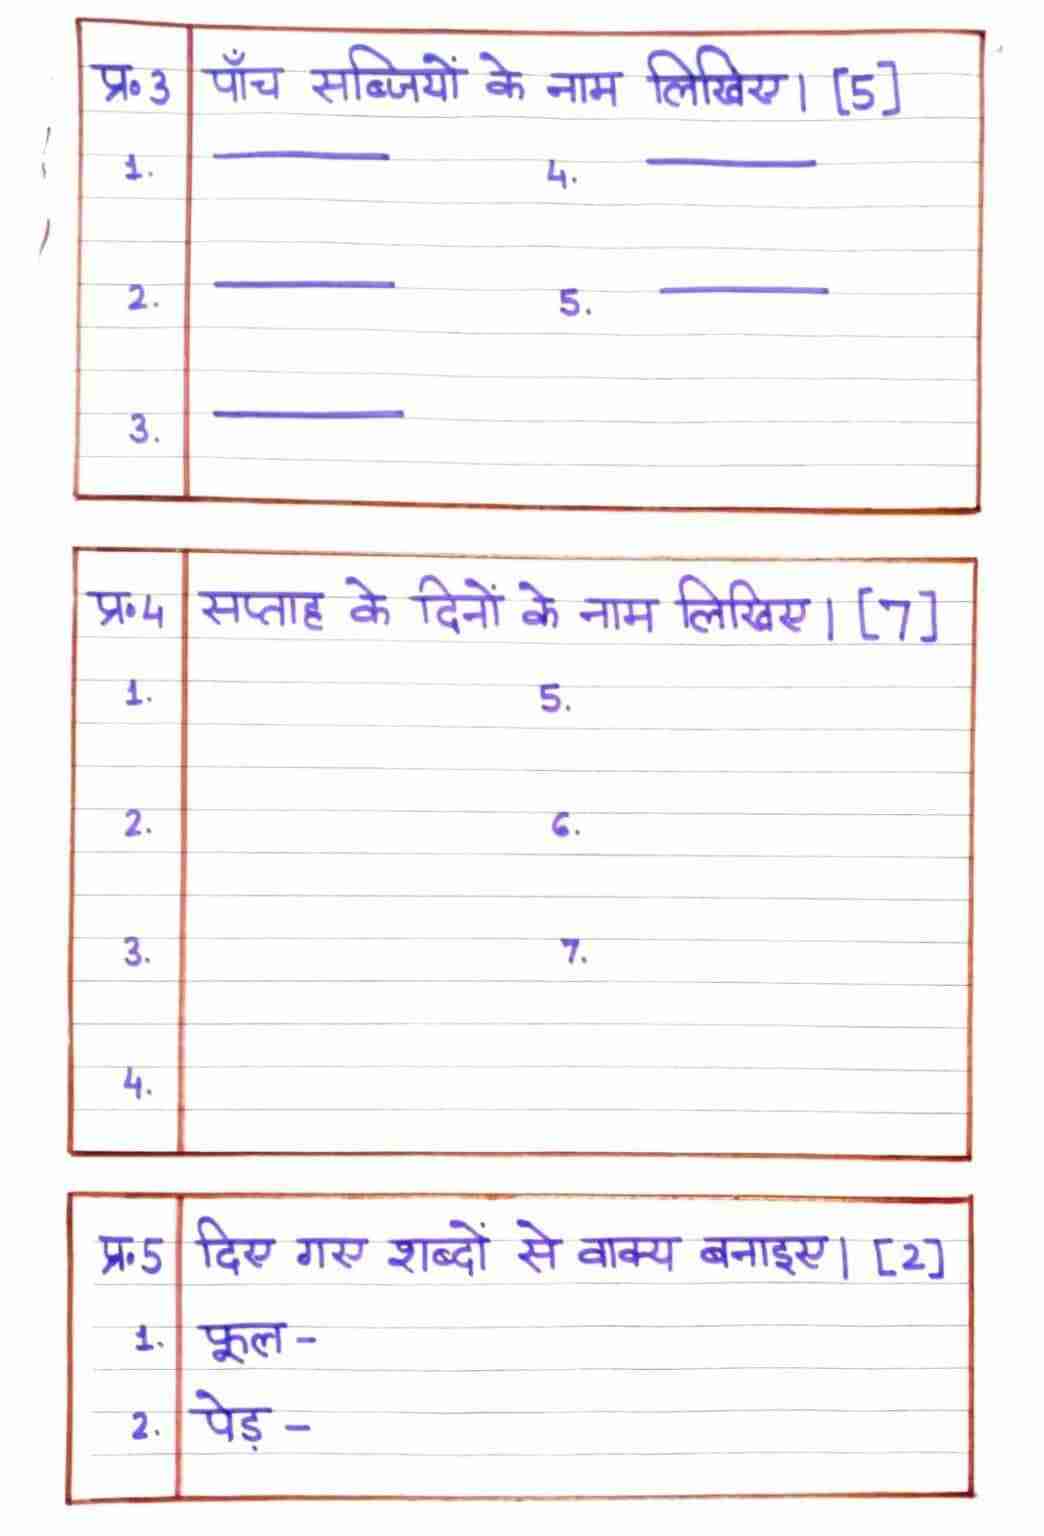 प्र.3 पाँच सब्जियों के नाम लिखिए। [5]
1. ______ 4. ______
2. ______ 5. ______
3. ______
प्र.4 सप्ताह के दिनों के नाम लिखिए। [7]
1. 5.
2. 6.
3. 7.
4.
प्र.5 दिए गए शब्दों से वाक्य बनाइए। [2]
1. फूल -
2. पेड़ -